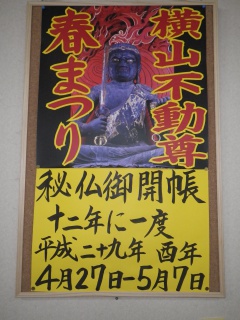 横山不動尊
春まつり
秘仏御開帳
十二年に一度
平成二十九年 酉年
4月27日-5月7日